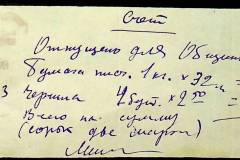 Счет
Отпущено для Общины
Бумага пис. 1 кг. × 32
3 Чернила 4 бут. × 2 50
Всего на сумму
(сорок две марки)